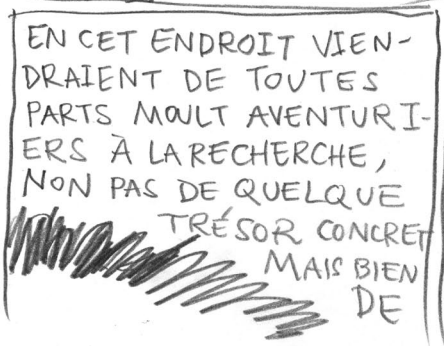 EN CET ENDROIT VIEN-
DRAIENT DE TOUTES
PARTS MOULT AVENTURI-
ERS À LA RECHERCHE,
NON PAS DE QUELQUE
TRÉSOR CONCRET
MAIS BIEN
DE